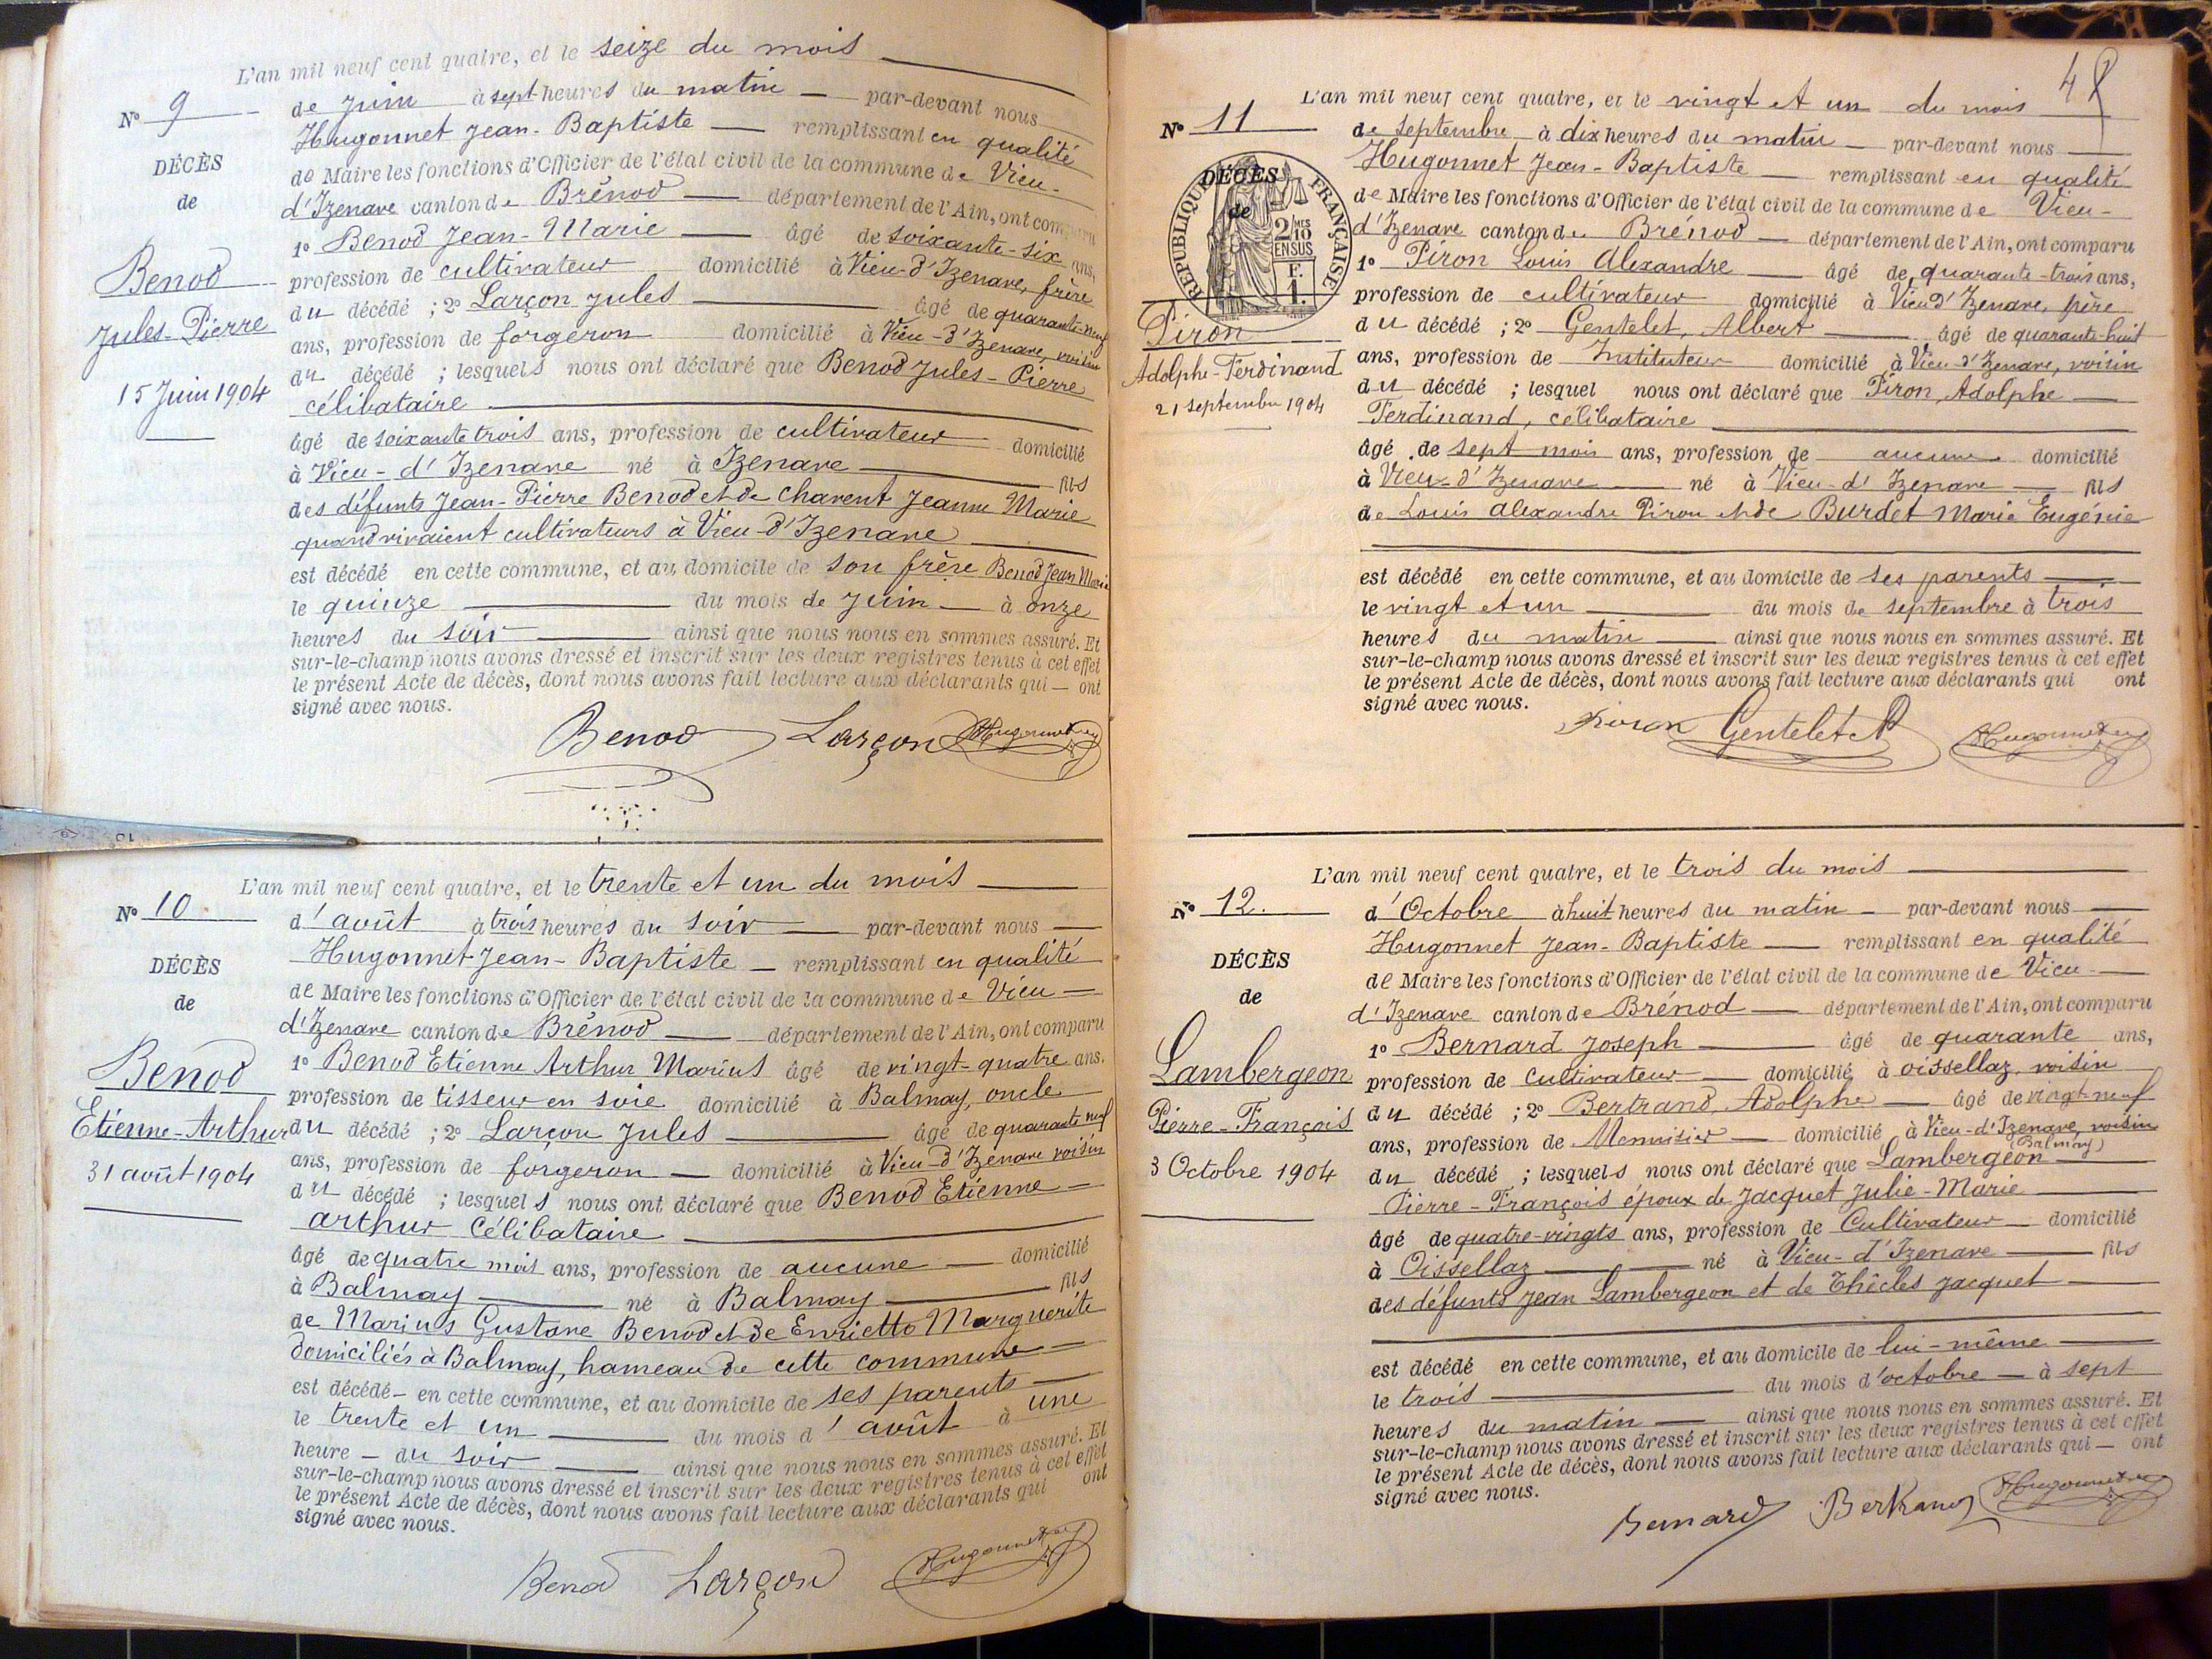 L'an mil neuf cent quatre, et le seize du mois
N° 9
de Juin à sept heures du matin — par-devant nous
Hugonnet Jean-Baptiste — remplissant en qualité
DÉCÈS
de Maire les fonctions d'Officier de l'état civil de la commune de Vieu-
de
d'Izenave canton de Brénod — département de l'Ain, ont comparu
1° Benod Jean-Marie — âgé de soixante-six ans,
Benod
profession de cultivateur domicilié à Vieu-d'Izenave, frère
du décédé ; 2° Larçon Jules — âgé de quarante-neuf
Jules-Pierre
ans, profession de forgeron domicilié à Vieu-d'Izenave, voisin
du décédé ; lesquels nous ont déclaré que Benod Jules-Pierre
15 Juin 1904
célibataire
âgé de soixante trois ans, profession de cultivateur domicilié
à Vieu-d'Izenave né à Izenave — fils
des défunts Jean-Pierre Benod et de Charent Jeanne Marie
quand vivaient cultivateurs à Vieu-d'Izenave
est décédé en cette commune, et au domicile de son frère Benod Jean Marie
le quinze — du mois de Juin — à onze
heures du soir — ainsi que nous nous en sommes assuré. Et
sur-le-champ nous avons dressé et inscrit sur les deux registres tenus à cet effet
le présent Acte de décès, dont nous avons fait lecture aux déclarants qui — ont
signé avec nous.
Benod Larçon Hugonnet
L'an mil neuf cent quatre, et le trente et un du mois
N° 10
d'août à trois heures du soir — par-devant nous —
Hugonnet Jean-Baptiste — remplissant en qualité
DÉCÈS
de Maire les fonctions d'Officier de l'état civil de la commune de Vieu —
de
d'Izenave canton de Brénod — département de l'Ain, ont comparu
1° Benod Etienne Arthur Marius âgé de vingt-quatre ans.
Benod
profession de tisseur en soie domicilié à Balmay, oncle
Etienne-Arthur
du décédé ; 2° Larçon Jules — âgé de quarante neuf
31 août 1904
ans, profession de forgeron — domicilié à Vieu-d'Izenave voisin
du décédé ; lesquels nous ont déclaré que Benod Etienne —
arthur célibataire
âgé de quatre mois ans, profession de aucune — domicilié
à Balmay — né à Balmay — fils
de Marius Gustave Benod et de Enrietto Marguerite
domiciliés à Balmay, hameau de cette commune —
est décédé — en cette commune, et au domicile de ses parents —
le trente et un — du mois d'août à une
heure — du soir — ainsi que nous nous en sommes assuré. Et
sur-le-champ nous avons dressé et inscrit sur les deux registres tenus à cet effet
le présent Acte de décès, dont nous avons fait lecture aux déclarants qui ont
signé avec nous.
Benod Larçon Hugonnet
48
L'an mil neuf cent quatre, et le vingt et un du mois
N° 11
de septembre à dix heures du matin — par-devant nous —
Hugonnet Jean-Baptiste — remplissant en qualité
DÉCÈS
de
RÉPUBLIQUE FRANÇAISE
2/10 EN SUS
F. 1.
de Maire les fonctions d'Officier de l'état civil de la commune de Vieu-
d'Izenave canton de Brénod — département de l'Ain, ont comparu
1° Piron Louis Alexandre — âgé de quarante-trois ans,
profession de cultivateur domicilié à Vieu d'Izenave, père
Piron
du décédé ; 2° Gentelet, Albert — âgé de quarante-huit
Adolphe-Ferdinand
ans, profession de Instituteur domicilié à Vieu d'Izenave, voisin
21 septembre 1904
du décédé ; lesquel nous ont déclaré que Piron, Adolphe —
Ferdinand, célibataire
âgé de sept mois ans, profession de aucune domicilié
à Vieu-d'Izenave — né à Vieu-d'Izenave — fils
de Louis Alexandre Piron et de Burdet Marie Eugénie
est décédé en cette commune, et au domicile de ses parents —
le vingt et un — du mois de septembre à trois
heures du matin — ainsi que nous nous en sommes assuré. Et
sur-le-champ nous avons dressé et inscrit sur les deux registres tenus à cet effet
le présent Acte de décès, dont nous avons fait lecture aux déclarants qui ont
signé avec nous.
Piron Gentelet A Hugonnet
L'an mil neuf cent quatre, et le trois du mois
N° 12.
d'Octobre à huit heures du matin — par-devant nous —
Hugonnet Jean-Baptiste — remplissant en qualité
DÉCÈS
de Maire les fonctions d'Officier de l'état civil de la commune de Vieu —
de
d'Izenave canton de Brénod — département de l'Ain, ont comparu
1° Bernard Joseph — âgé de quarante ans,
Lambergeon
profession de cultivateur — domicilié à oissellaz, voisin
Pierre-François
du décédé ; 2° Bertrand, Adolphe — âgé de vingt-neuf
ans, profession de Menuisier — domicilié à Vieu-d'Izenave, voisin
(Balmay)
3 Octobre 1904
du décédé ; lesquels nous ont déclaré que Lambergeon —
Pierre-François époux de Jacquet Julie-Marie
âgé de quatre-vingts ans, profession de Cultivateur — domicilié
à Oissellaz — né à Vieu-d'Izenave — fils
des défunts Jean Lambergeon et de Thècles Jacquet —
est décédé en cette commune, et au domicile de lui-même —
le trois — du mois d'octobre — à sept
heures du matin — ainsi que nous nous en sommes assuré. Et
sur-le-champ nous avons dressé et inscrit sur les deux registres tenus à cet effet
le présent Acte de décès, dont nous avons fait lecture aux déclarants qui — ont
signé avec nous.
Bernard Bertrand Hugonnet